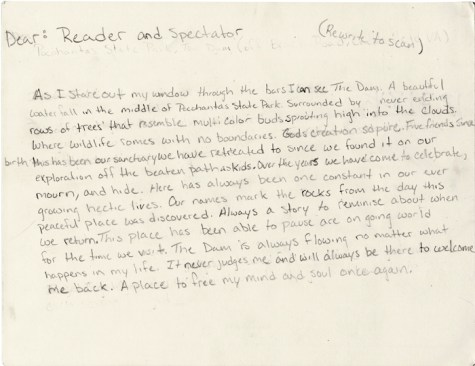 Dear: Reader and Spectator
(Rework to scan)
As I Stare out my window through the bars I can see The Dam. A beautiful
waterfall in the middle of Pocahanta's State Park. Sorrounded by never ending
rows of trees that resemble multi color buds sprouting high into the clouds.
Where wildlife romes with no boundaries. Gods creation so pure. Five friends since
birth, this has been our sanctuary we have retreated to since we found it on our
exploration off the beaten path as kids. Over the years we have come to celebrate,
mourn, and hide. Here has always been one constant in our ever
growing hectic lives. Our names mark the rocks from the day this
peaceful place was discovered. Always a story to reminise about when
we return. This place has been able to pause are on going world
for the time we visit. The Dam is always flowing no matter what
happens in my life. It never judges me and will always be there to welcome
me back. A place to free my mind and soul once again.